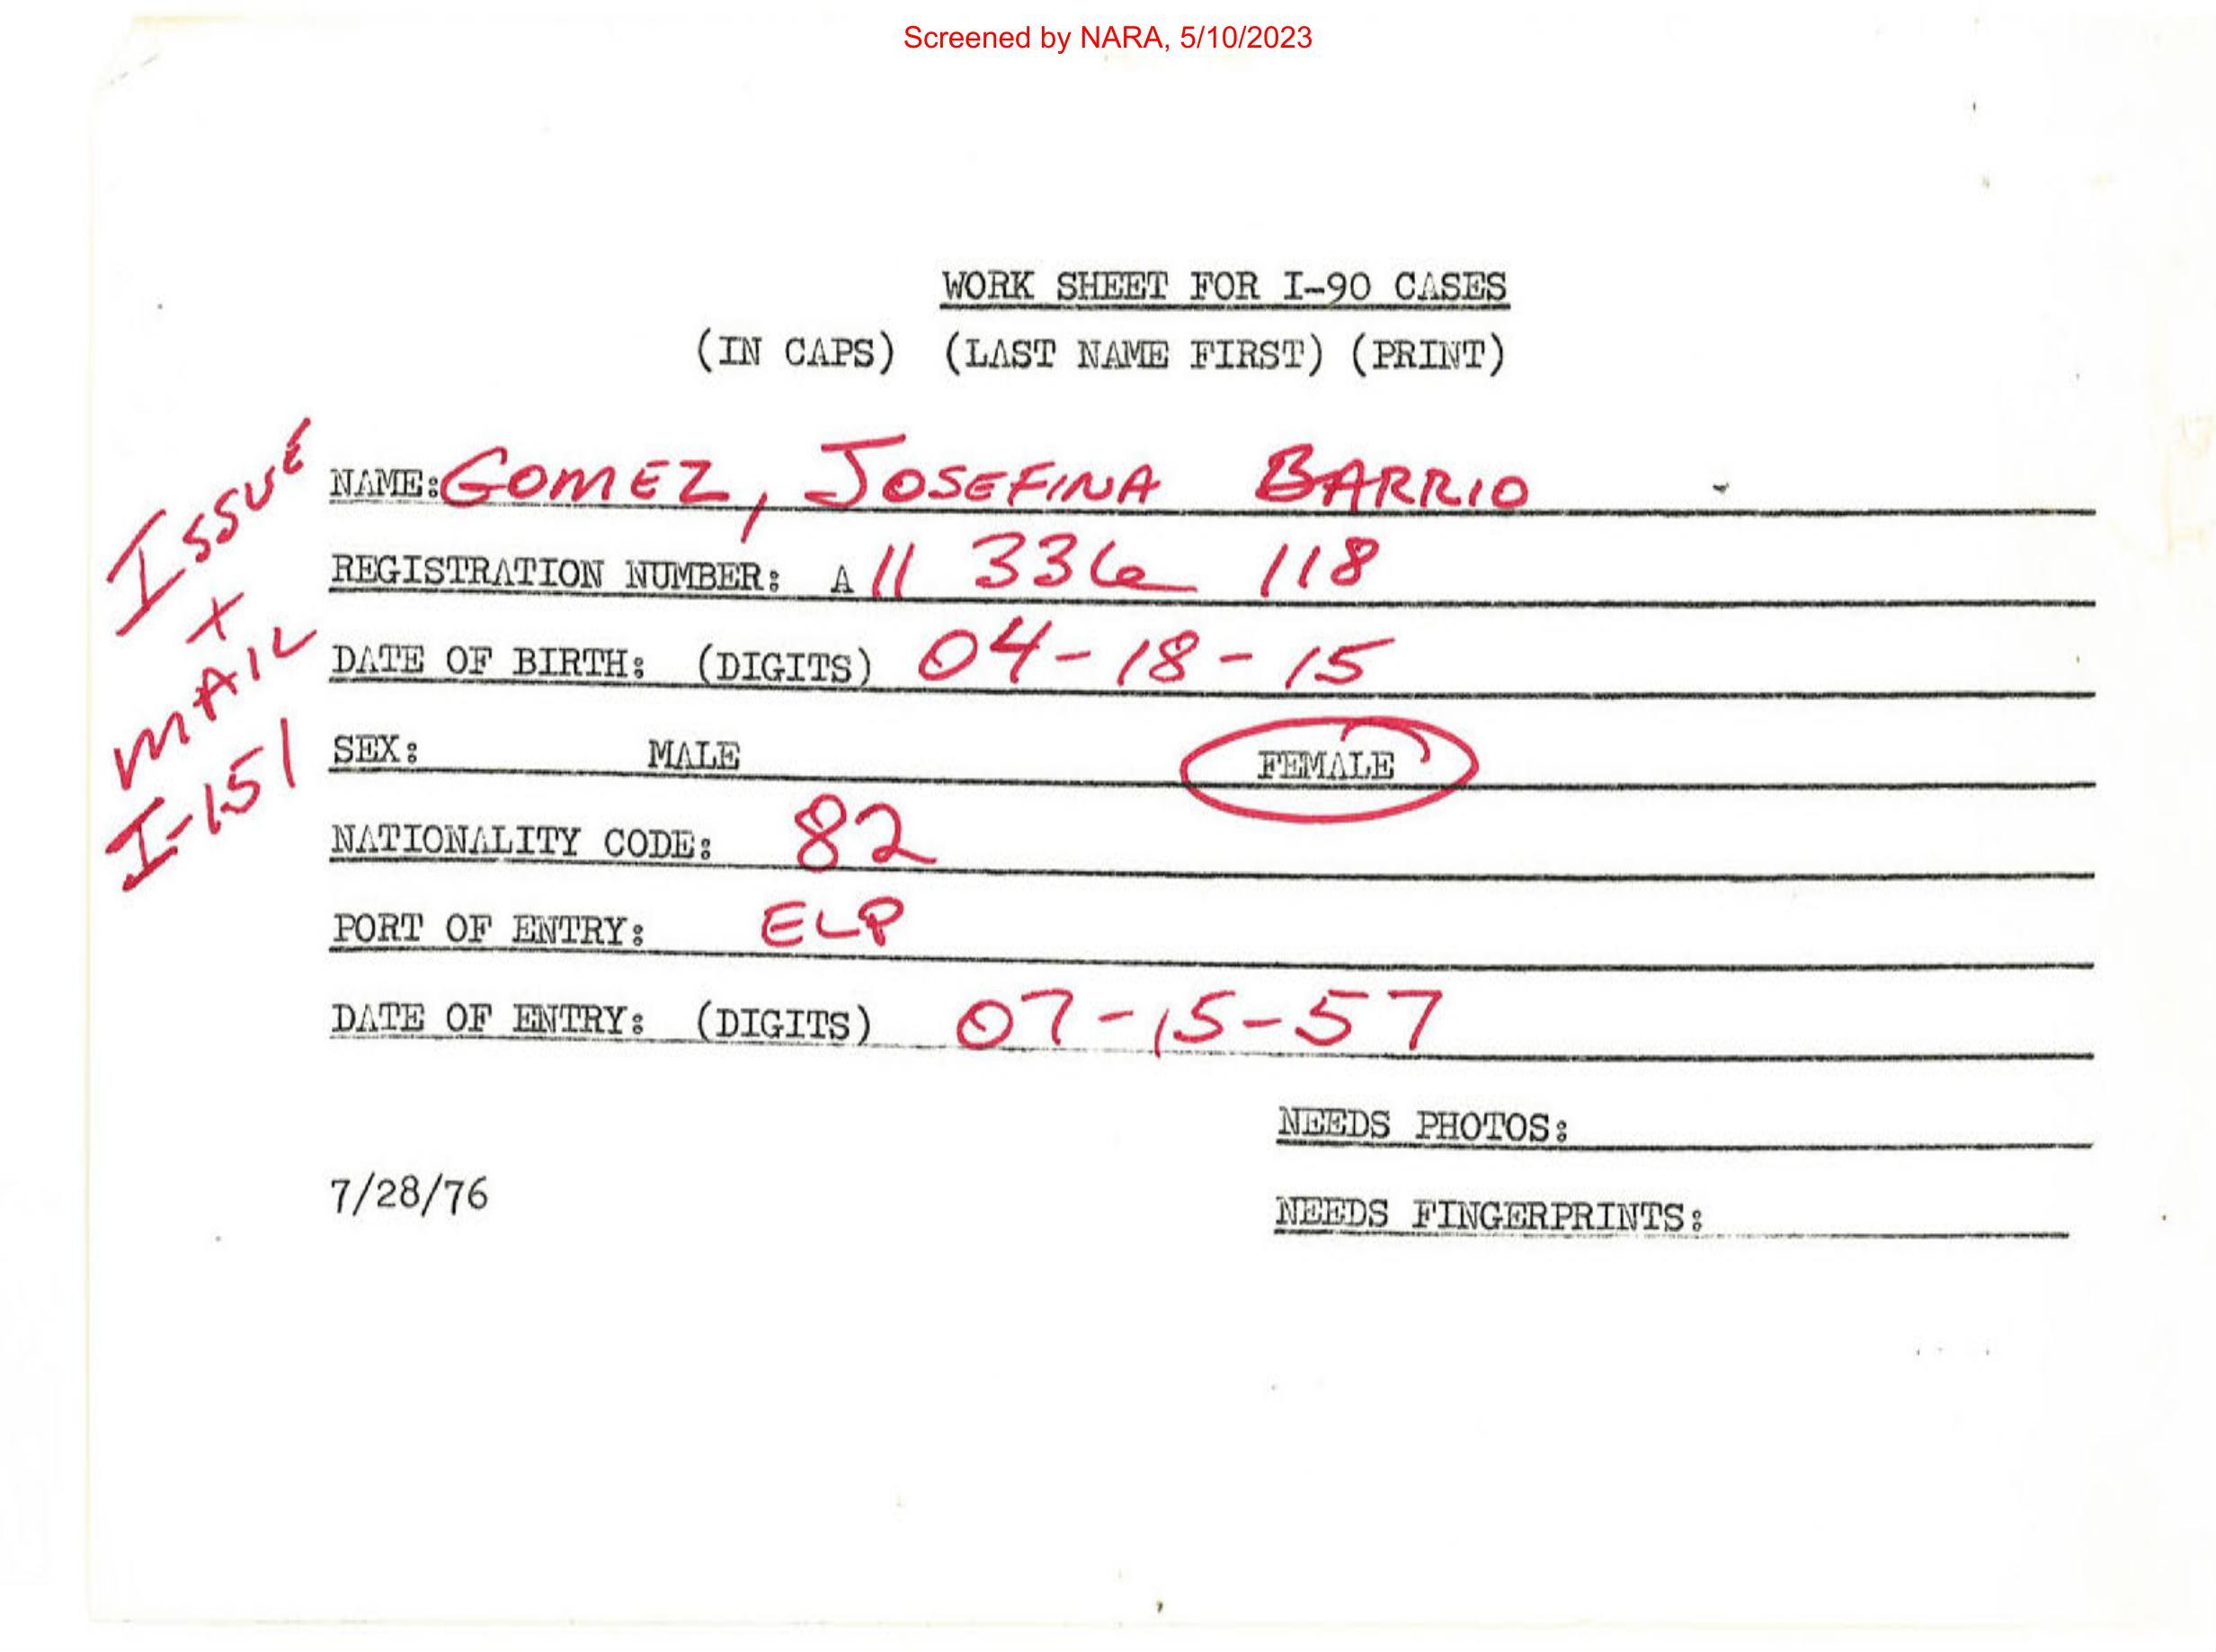 Screened by NARA, 5/10/2023
WORK SHEET FOR I-90 CASES
(IN CAPS) (LAST NAME FIRST) (PRINT)
ISSUE
+
MAIL
I-151
NAME: GOMEZ, JOSEFINA BARRIO
REGISTRATION NUMBER: A 11 336 118
DATE OF BIRTH: (DIGITS) 04-18-15
SEX: MALE FEMALE
NATIONALITY CODE: 82
PORT OF ENTRY: ELP
DATE OF ENTRY: (DIGITS) 07-15-57
NEEDS PHOTOS:
7/28/76
NEEDS FINGERPRINTS: